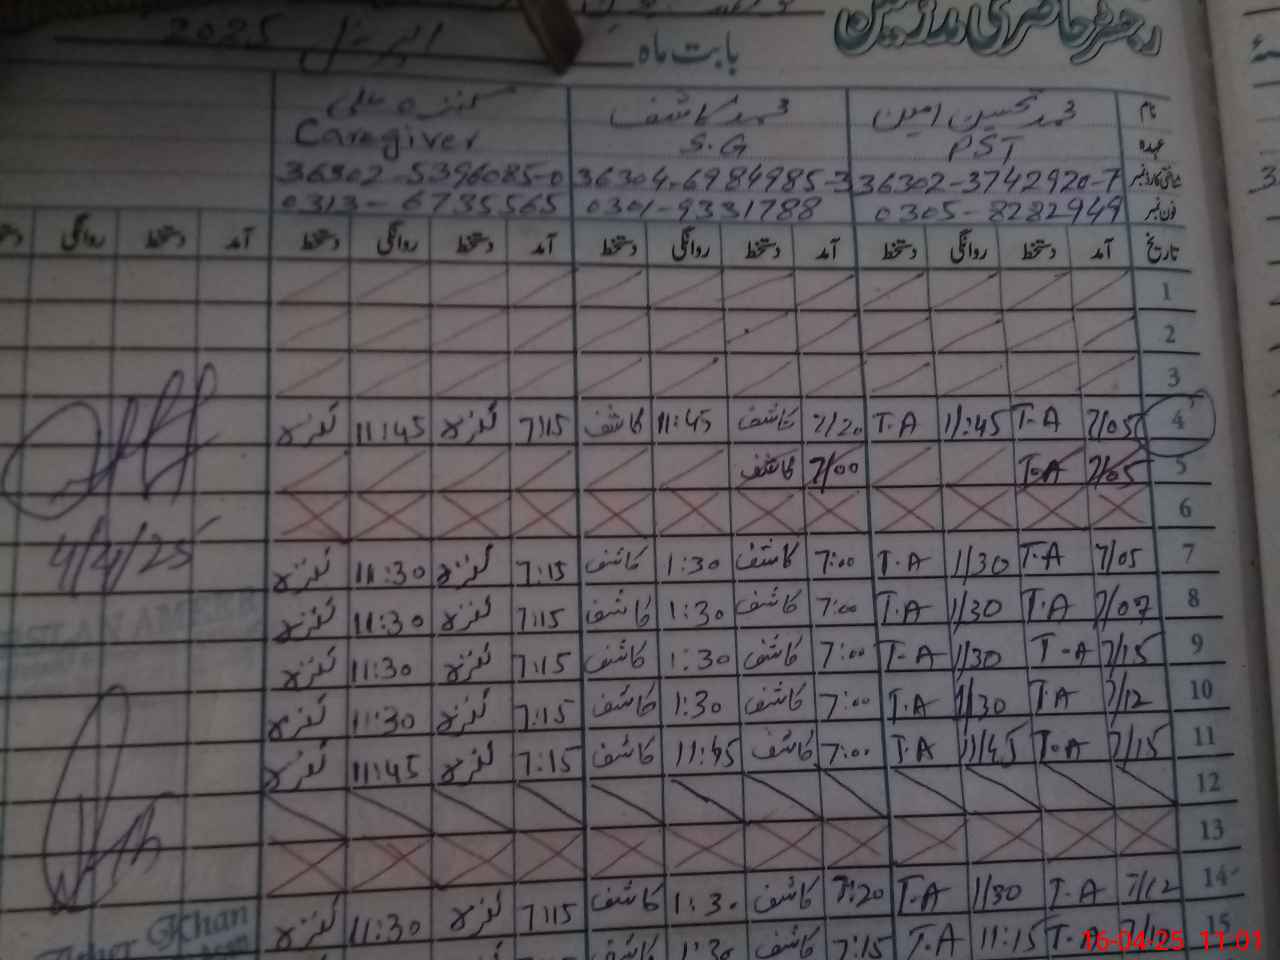 رجسٹر حاضری مدرسین
بابت ماہ اپریل 2025
نام محمد تحسین امین محمد کاشف کنزہ علی
عہدہ PST S.G Caregiver
شناختی کارڈ نمبر 36302-3742920-7 36304-6984985-3 36302-5396085-0
فون نمبر 0305-8282949 0301-9331788 0313-6735565
تاریخ آمد دستخط روانگی دستخط آمد دستخط روانگی دستخط آمد دستخط روانگی دستخط آمد دستخط روانگی
1
2
3
4 7/05 T.A 11:45 T.A 7/20 کاشف 11:45 کاشف 7:15 کنزہ 11:45 کنزہ
5 7/05 T.A 7/00 کاشف
6
7 7/05 T.A 1/30 T.A 7:00 کاشف 1:30 کاشف 7:15 کنزہ 11:30 کنزہ
4/4/25
8 7/07 T.A 1/30 T.A 7:00 کاشف 1:30 کاشف 7:15 کنزہ 11:30 کنزہ
9 7/15 T.A 1/30 T.A 7:00 کاشف 1:30 کاشف 7:15 کنزہ 11:30 کنزہ
10 7/12 T.A 1/30 T.A 7:00 کاشف 1:30 کاشف 7:15 کنزہ 11:30 کنزہ
11 7/15 T.A 11/45 T.A 7:00 کاشف 11:45 کاشف 7:15 کنزہ 11:45 کنزہ
12
13
14 7/12 T.A 1/30 T.A 7:20 کاشف 1:30 کاشف 7:15 کنزہ 11:30 کنزہ
Khan
15 T.A 11:15 T.A 7:15 کاشف 1:30 کاشف
16-04-25 11:01